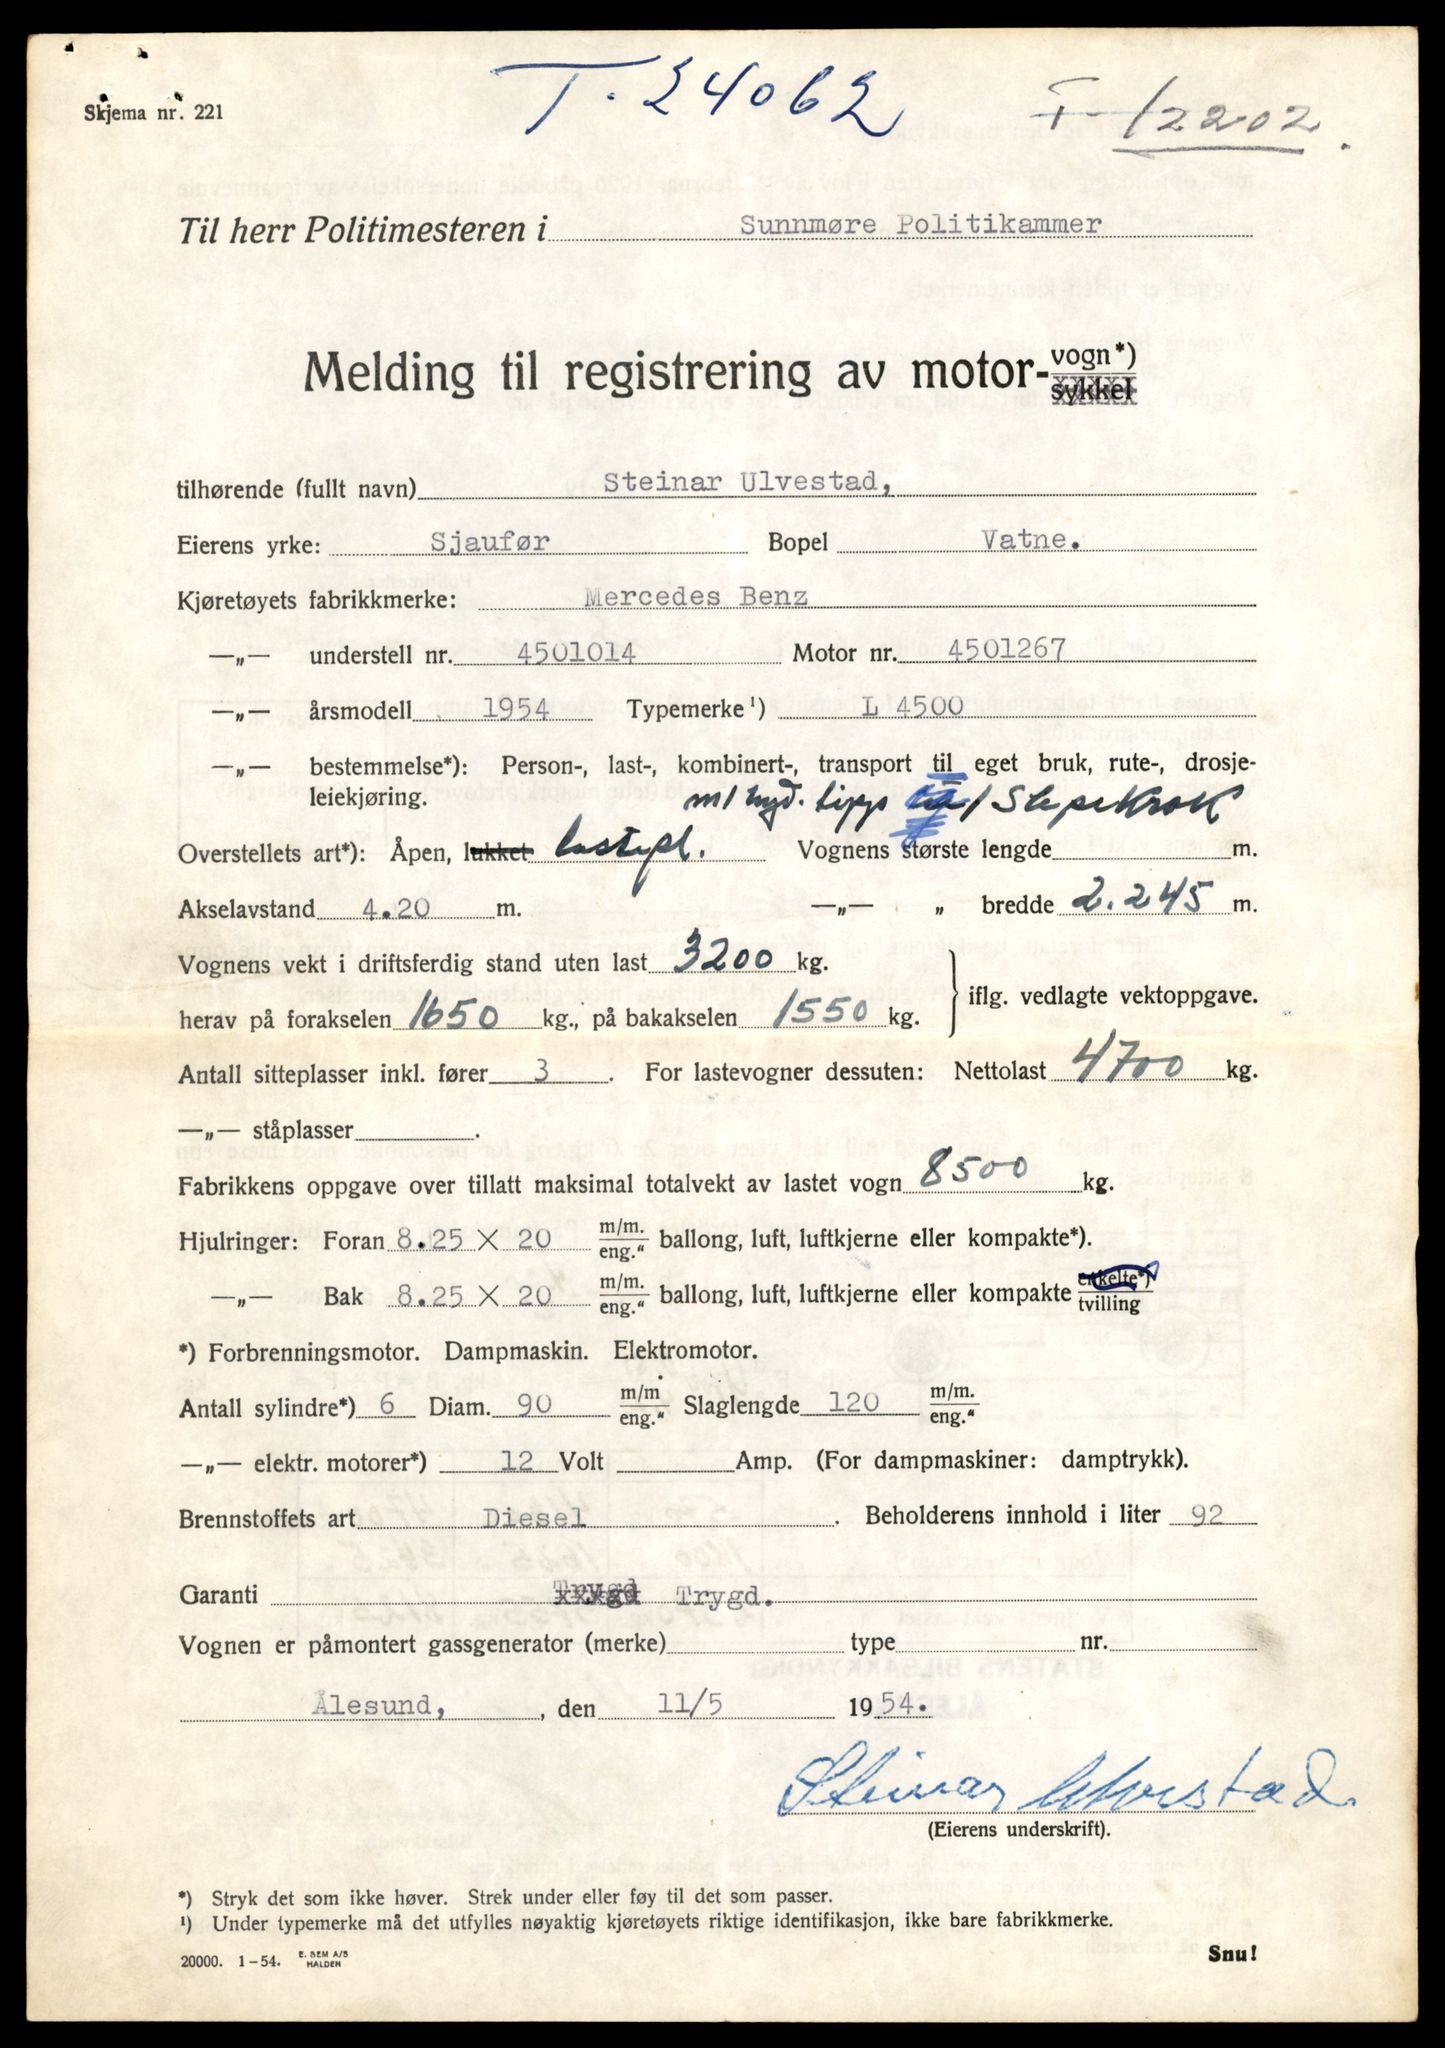 T. 24062
T-12202.
Skjema nr. 221
Til herr Politimesteren i Sunnmøre Politikammer
Melding til registrering av motor-vogn*)
sykkel
tilhørende (fullt navn) Steinar Ulvestad,
Eierens yrke: Sjaufør Bopel Vatne.
Kjøretøyets fabrikkmerke: Mercedes Benz
—„— understell nr. 4501014 Motor nr. 4501267
—„— årsmodell 1954 Typemerke¹) L 4500
—„— bestemmelse*): Person-, last-, kombinert-, transport til eget bruk, rute-, drosje-
leiekjøring. m/ hyd. tipp / Slepekrok
Overstellets art*): Åpen, lukket lastepl. Vognens største lengde m.
Akselavstand 4.20 m. —„— „ bredde 2.245 m.
Vognens vekt i driftsferdig stand uten last 3200 kg.
herav på forakselen 1650 kg., på bakakselen 1550 kg. } iflg. vedlagte vektoppgave.
Antall sitteplasser inkl. fører 3 . For lastevogner dessuten: Nettolast 4700 kg.
—„— ståplasser .
Fabrikkens oppgave over tillatt maksimal totalvekt av lastet vogn 8500 kg.
Hjulringer: Foran 8.25 X 20 m/m. eng.“ ballong, luft, luftkjerne eller kompakte*).
—„— Bak 8.25 X 20 m/m. eng.“ ballong, luft, luftkjerne eller kompakte enkelte*) tvilling
*) Forbrenningsmotor. Dampmaskin. Elektromotor.
Antall sylindre*) 6 Diam. 90 m/m eng.“ Slaglengde 120 m/m. eng.“
—„— elektr. motorer*) 12 Volt Amp. (For dampmaskiner: damptrykk).
Brennstoffets art Diesel . Beholderens innhold i liter 92
Garanti Trygd Trygd.
Vognen er påmontert gassgenerator (merke) type nr.
Ålesund, , den 11/5 1954.
Steinar Ulvestad.
(Eierens underskrift).
*) Stryk det som ikke høver. Strek under eller føy til det som passer.
¹) Under typemerke må det utfylles nøyaktig kjøretøyets riktige identifikasjon, ikke bare fabrikkmerke.
20000. 1-54. E. SEM A/S HALDEN
Snu!